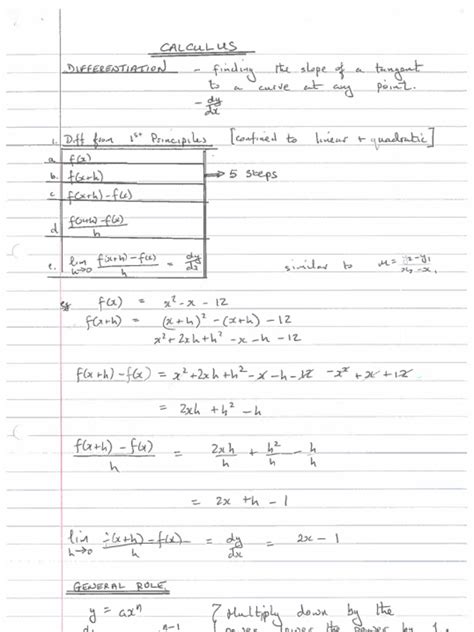 CALCULUS
DIFFERENTIATION - finding the slope of a tangent
to a curve at any point.
- dy/dx
1. Diff from 1st Principles [confined to linear + quadratic]
a. f(x)
b. f(x+h) → 5 steps
c. f(x+h) - f(x)
d. f(x+h) - f(x) / h
e. lim h→0 f(x+h) - f(x) / h = dy/dx similar to m = y2-y1 / x2-x1
eg f(x) = x² - x - 12
f(x+h) = (x+h)² - (x+h) - 12
x² + 2xh + h² - x - h - 12
f(x+h) - f(x) = x² + 2xh + h² - x - h - 12 - x² + x + 12
= 2xh + h² - h
f(x+h) - f(x) / h = 2xh/h + h²/h - h/h
= 2x + h - 1
lim h→0 f(x+h) - f(x) / h = dy/dx = 2x - 1
GENERAL RULE
y = axⁿ [Multiply down by the
n-1 power, lower the power by 1